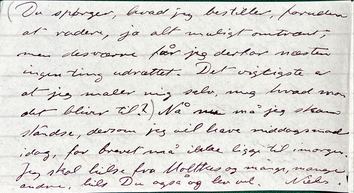 (Du spørger, hvad jeg bestiller, foruden
at radere, ja alt muligt omtrent,
men desværre får jeg derfor næsten
ingenting udrettet. Det vigtigste er
at jeg maler mig selv, mug hvad mon
det bliver til?) Nå nu må jeg skam
standse, dersom jeg vil have middagsmad
idag, for brevet må ikke ligge til imorgen.
Jeg skal hilse fra Molthes og mange, mange
andre, hils Du også og lev vel Niels